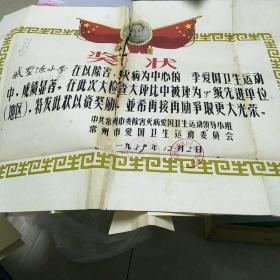 奖状
在以除害灭病为中心的 季爱国卫生运动
中,成绩显著,在此次大检查大评比中被评为 级先进单位
(地区),特发此状以资奖励,並希再接再励争取更大光荣。
中共常州市委除害灭病爱国卫生运动领导小组
常州市爱国卫生运动委员会
一九五九年12月2日